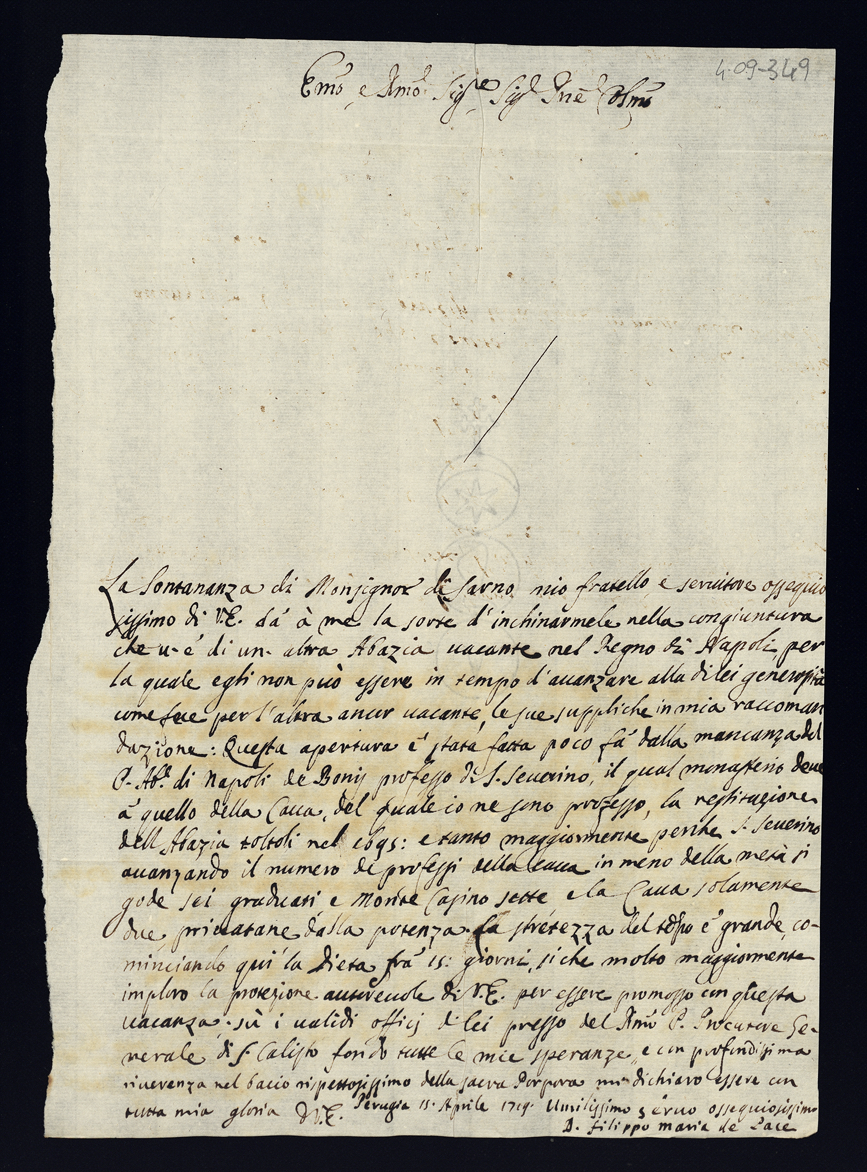 4-09-349
Emo e Rmo Sigre Sigr Pne Colmo
La lontananza di Monsignor di Sarno mio fratello, e servitore ossequio
sissimo di V.E. dà à me la sorte d'inchinarmele nella congiuntura
che v'è di un altra Abazia vacante nel Regno di Napoli per
la quale egli non può essere in tempo d'avanzare alla di lei generosità
come fece per l'altra ancor vacante, le sue suppliche in mia raccoman
dazione: Questa apertura è stata fatta poco fà dalla mancanza del
P. Abe di Napoli de Bonij professo di S. Severino, il qual monasterio deve
a quello della Cava, del quale io ne sono professo, la restituzione
dell'Abazia toltoli nel 1695: e tanto maggiormente perche S. Severino
avanzando il numero de professi della Cava in meno della metà si
gode sei graduati e Monte Casino sette e la Cava solamente
due, privatane dalla potenza. La stretezza del tempo è grande, co-
minciando qui la Dieta frà 15: giorni, siche molto maggiormente
imploro la protezione autorevole di V.E. per essere promosso con questa
vacanza, sù i validi officij di lei presso del Rmo P. Procuratore Ge-
nerale di S. Calisto fondo tutte le mie speranze, e con profondissima
riverenza nel bacio rispettosissimo della sacra Porpora mi dichiaro essere con
tutta mia gloria D.V.E. Perugia 15. Aprile 1719. Umilissimo servo ossequiosissimo
D. Filippo Maria de Pace